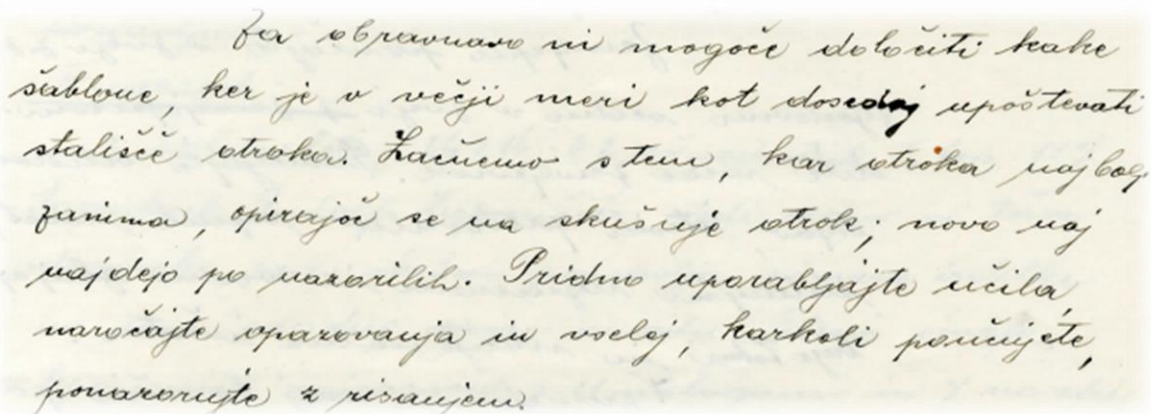 Za obravnavo ni mogoče določiti kake
šablone, ker je v večji meri kot dosedaj upoštevati
stališče otroka. Začnemo s tem, kar otroka najbolj
zanima, opirajoč se na skušnje otrok; novo naj
najdejo po nazorilih. Pridno uporabljajte učila,
naročajte opazovanja in vselej, karkoli poučujete,
ponazorujte z risanjem.